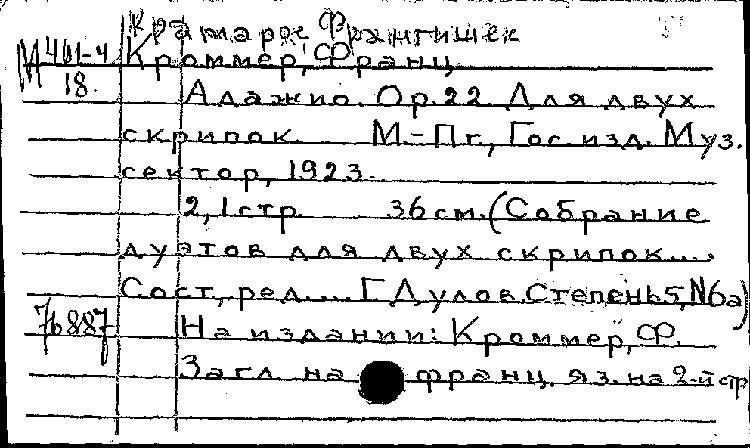 Крамарж Франтишек
М 401-4 Кроммер, Франц
18. Адажио. Ор. 22 Для двух
скрипок М.-Пг., Гос. изд. Муз.
сектор, 1923.
2, 1 стр. 36 см. (Собрание
дуэтов для двух скрипок....
Сост., ред.... Г. Дулов. Степень 5, №6а)
76887 На издании: Кроммер, Ф.
Загл. на франц. яз. на 2-й стр